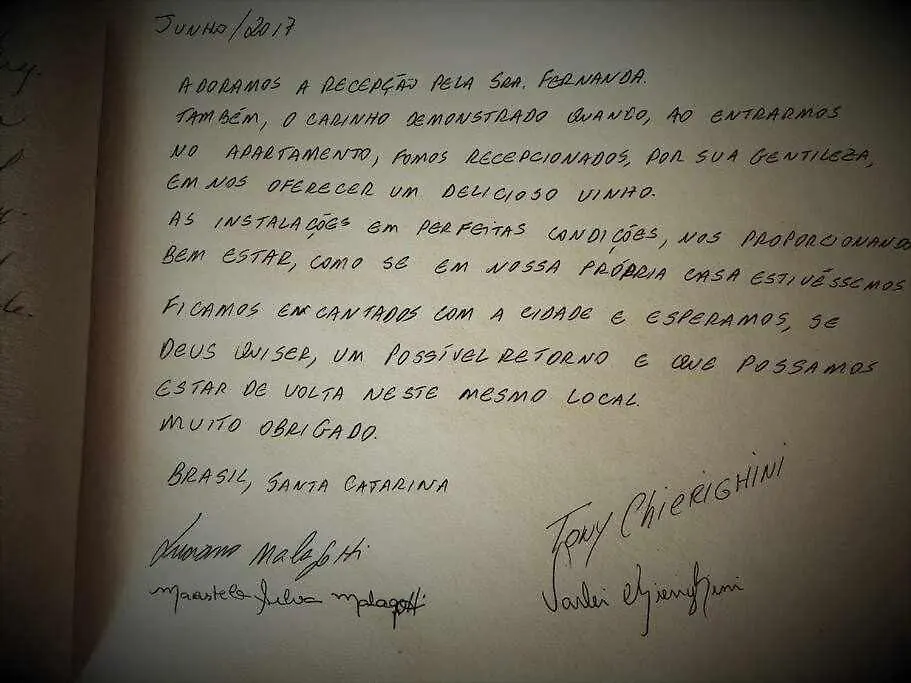 JUNHO/2017
ADORAMOS A RECEPÇÃO PELA SRA. FERNANDA.
TAMBÉM, O CARINHO DEMONSTRADO QUANDO, AO ENTRARMOS
NO APARTAMENTO, FOMOS RECEPCIONADOS, POR SUA GENTILEZA,
EM NOS OFERECER UM DELICIOSO VINHO.
AS INSTALAÇÕES EM PERFEITAS CONDIÇÕES, NOS PROPORCIONANDO
BEM ESTAR, COMO SE EM NOSSA PRÓPRIA CASA ESTIVÉSSEMOS
FICAMOS ENCANTADOS COM A CIDADE E ESPERAMOS, SE
DEUS QUISER, UM POSSÍVEL RETORNO E QUE POSSAMOS
ESTAR DE VOLTA NESTE MESMO LOCAL.
MUITO OBRIGADO.
BRASIL, SANTA CATARINA
TONY CHIERIGHINI
Malagotti
Silva Malagotti
Chierighini